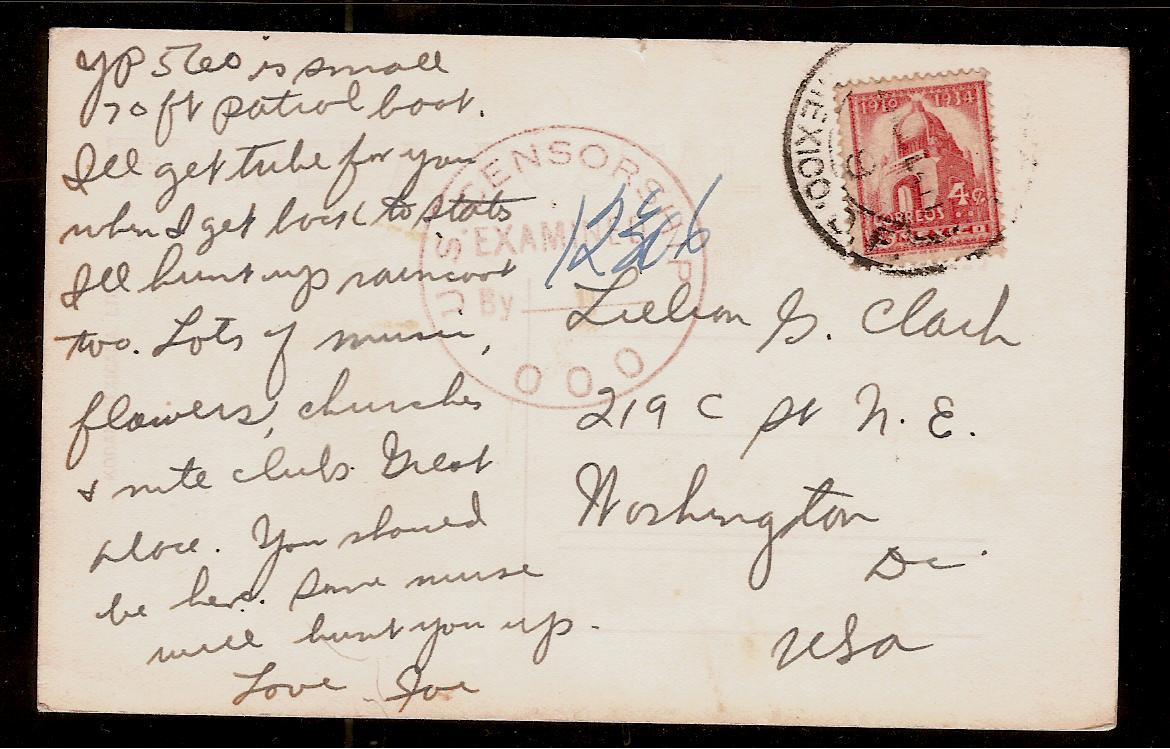 YP 560 is small
70 ft patrol boat.
I'll get tube for you
when I get back to stats
I'll hunt up raincoat
too. Lots of music,
flowers, churches
& nite clubs. Great
place. You should
be here. Some nurse
will hunt you up.
Love Joe
U.S. CENSORSHIP
EXAMINED
By
000
MEXICO, D.
1910 1934
4¢
CORREOS
MEXICO
Lillian G. Clark
219 C St N. E.
Washington
DC
USA